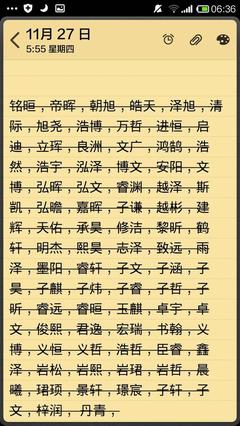 06:36
11月 27 日
5:55 星期四
铭晅，帝晖，朝旭，皓天，泽旭，清
际，旭尧，浩博，万哲，进恒，启
迪，立珲，良洲，文广，鸿鹄，浩
然，浩宇，泓泽，博文，安阳，文
博，弘晖，弘文，睿渊，越泽，斯
凯，弘瞻，嘉晖，子谦，越彬，建
辉，天佑，承昊，修洁，黎昕，鹤
轩，明杰，熙昊，志泽，致远，雨
泽，墨阳，睿轩，子文，子涵，子
昊，子麒，子炜，子睿，子哲，子
昕，睿远，睿晅，玉麒，卓宇，卓
文，俊熙，君逸，宏瑞，书翰，义
博，义恒，义哲，浩哲，臣睿，鑫
泽，岩松，岩熙，岩珺，岩哲，晨
曦，珺顼，景轩，璟宸，子轩，子
文，梓润，丹青，